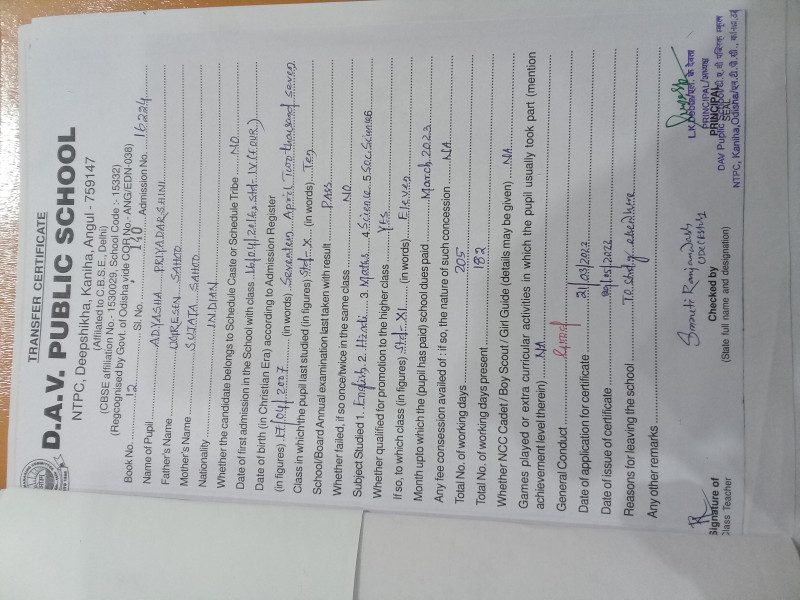 TRANSFER CERTIFICATE
D.A.V. PUBLIC SCHOOL
NTPC, Deepshikha, Kaniha, Angul - 759147
(Affiliated to C.B.S.E., Delhi)
(CBSE affiliation No.-1530029, School Code :- 15332)
(Regcognised by Govt. of Odisha vide COR No.- ANG/EDN-038)
Book No. 12 Sl. No. 140 Admission No. 16224
Name of Pupil ADYASHA PRIYADARSHINI
Father's Name UGRESEN SAHOO
Mother's Name SUJATA SAHOO
Nationality INDIAN
Whether the candidate belongs to Schedule Caste or Schedule Tribe NO
Date of first admission in the School with class 16/04/2016, std-IV (FOUR)
Date of birth (in Christian Era) according to Admission Register
(in figures) 17/04/2007 (in words) Seventeen April Two thousand seven
Class in which the pupil last studied (in figures) Std-X (in words) Ten
School/Board Annual examination last taken with result Pass
Whether failed, if so once/twice in the same class NO
Subject Studied 1. English 2. Hindi 3. Maths 4 Science 5 Soc. Science 6
Whether qualified for promotion to the higher class YES
If so, to which class (in figures) Std-XI (in words) Eleven
Month upto which the (pupil has paid) school dues paid March, 2023
Any fee consession availed of : if so, the nature of such concession NA
Total No. of working days 205
Total No. of working days present 182
Whether NCC Cadet / Boy Scout / Girl Guide (details may be given) NA
Games played or extra curricular activities in which the pupil usually took part (mention
achievement level therein) NA
General Conduct Good
Date of application for certificate
Date of issue of certificate
Reasons for leaving the school To study elsewhere
Any other remarks
Signature of
Class Teacher
Checked by
(State full name and designation)
PRINCIPAL
SEAL
PRINCIPAL/प्राचार्य
DAV Public School
NTPC, Kaniha, Odisha